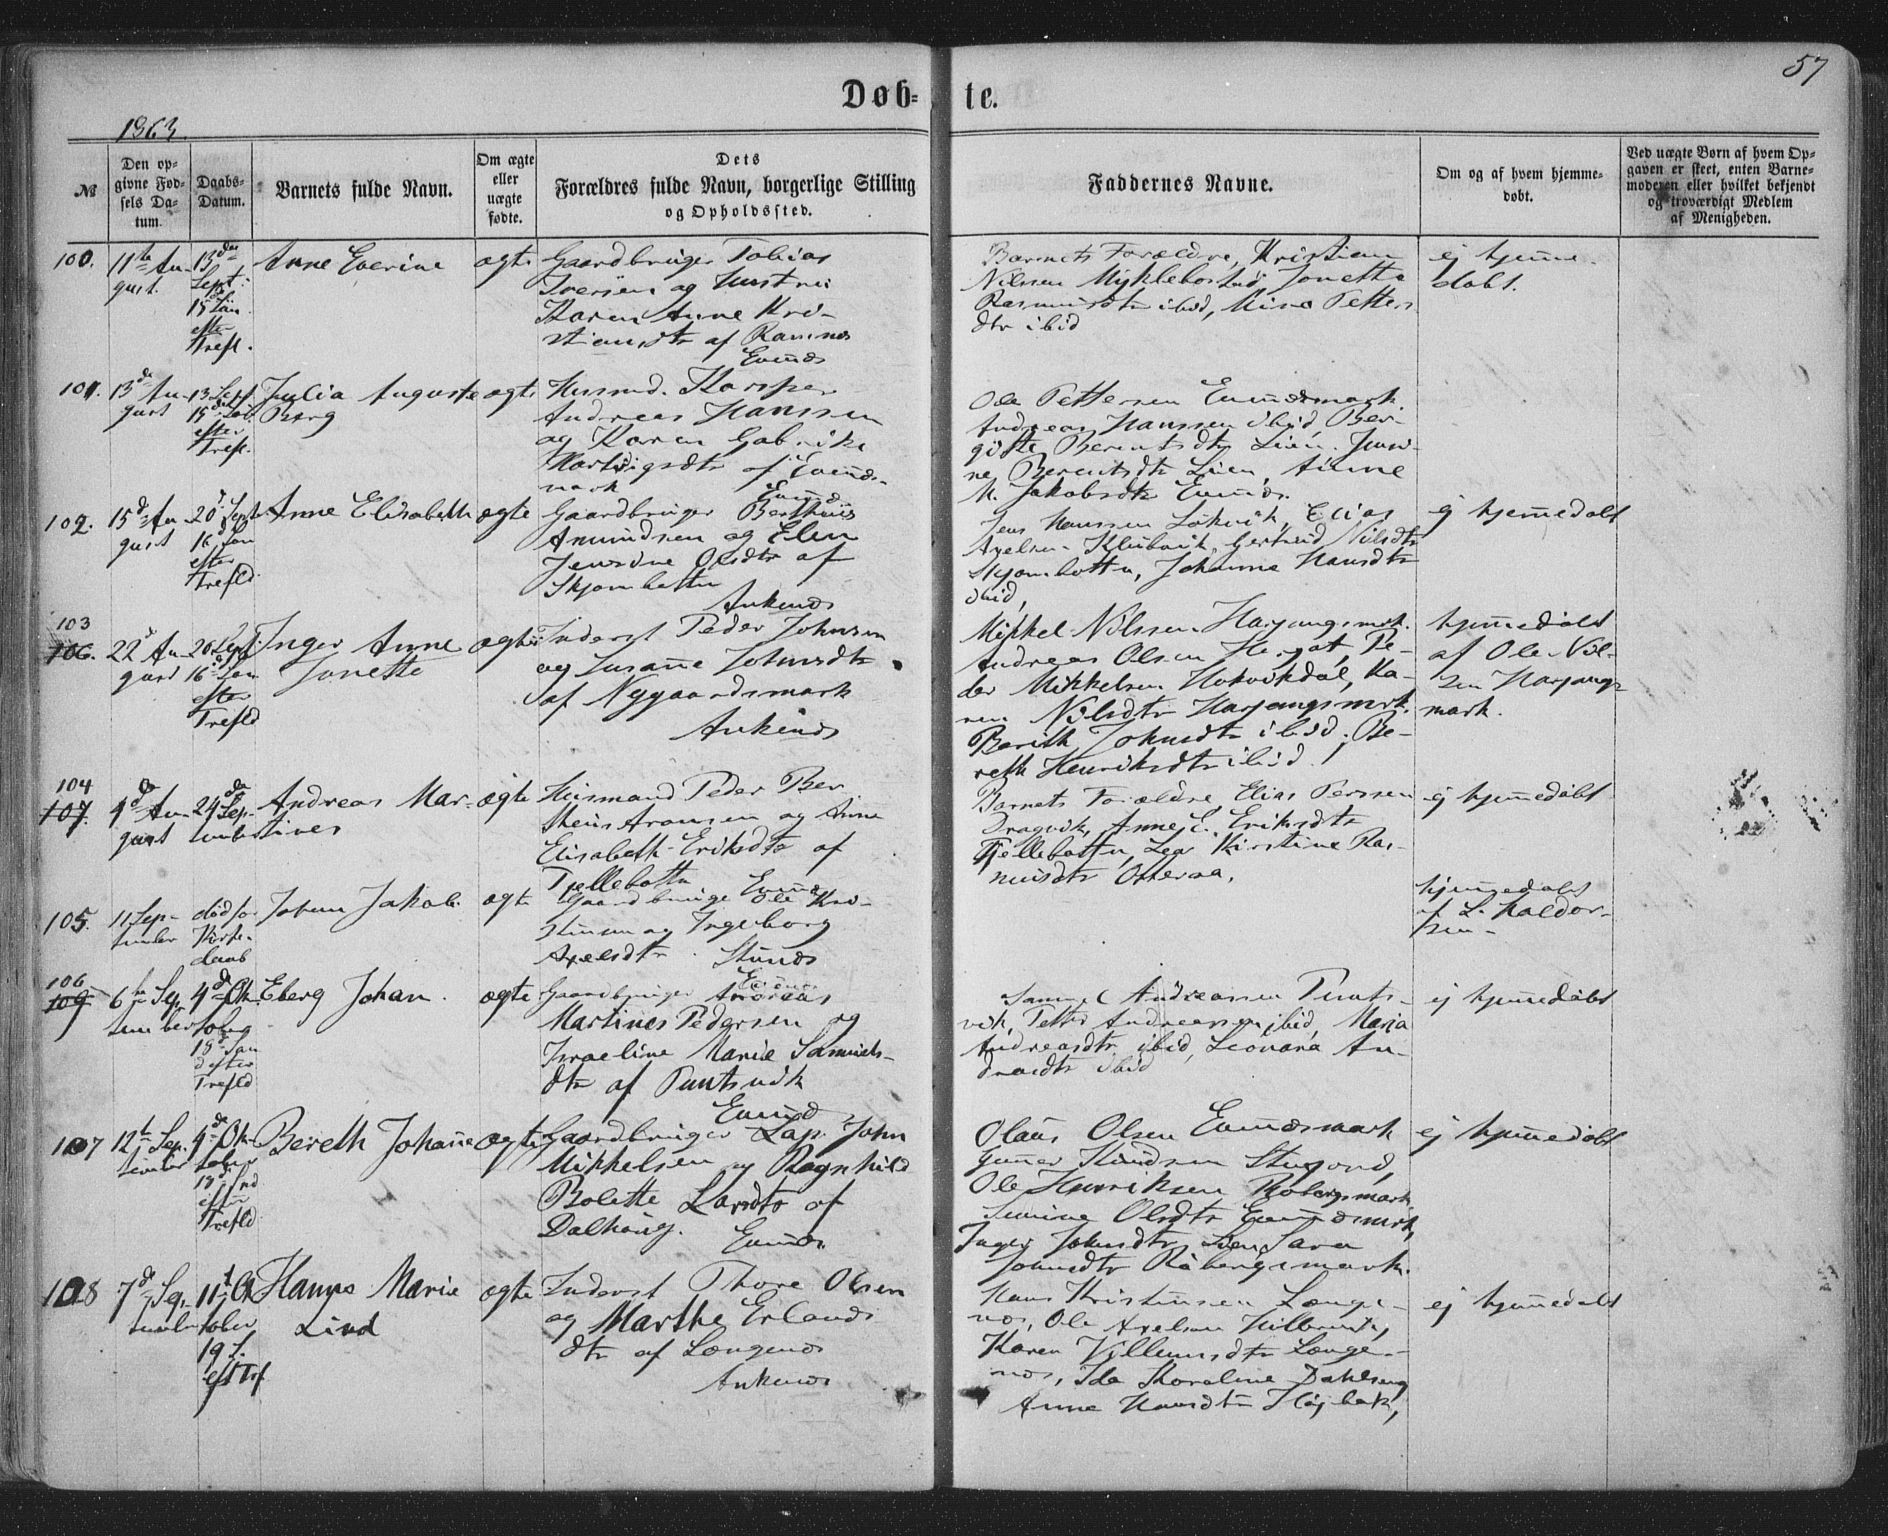 57
Døb-te.
1863.
№
Den op-
givne Fød-
sels Da-
tum.
Daabs-
Datum.
Barnets fulde Navn.
Om ægte
eller
uægte
fødte.
Dets
Forældres fulde Navn, borgerlige Stilling
og Opholdssted.
Faddernes Navne.
Om og af hvem hjemme-
døbt.
Ved uægte Børn af hvem Op-
gaven er skeet, enten Barne-
moderen eller hvilket bekjendt
og troværdigt Medlem
af Menigheden.
100.
11te Au-
gust.
13de
Sept.
15 Søn.
efter
Trefl.
Anne Everine
ægte
Gaardbruger Tobias
Iversen og Hustru
Karen Anne Kri-
stiansdtr af Ramnes
Evenæs
Barnets Forældre, Kristian
Nilsen Myklebostad, Jonette
Rasmusdtr ibid, Mina Petters
dtr ibid
ej hjemme-
døbt.
101.
13de Au-
gust
13 Sept.
15 Søn.
efter
Trefl.
Julia Auguste
Berg
ægte
Husmd. Kasper
Andreas Hanssen
og Karen Gabrike
Hartvigsdtr af Evenæs-
mark
Evenæs
Ole Pettersen Evenæsmark
Andreas Hanssen ibid, Ber-
gitte Berentsdtr Lien, Jensi-
ne Berentsdtr Lien, Anne
M. Jakobsdtr Evenæs.
102.
15d Au-
gust
20d Sept.
16 Søn
efter
Trefld.
Anne Elisabeth
ægte
Gaardbruger Berthiis
Amundsen og Elen
Jensine Olsdtr af
Skjombotten
Ankenæs
Jens Hanssen Lakvik, Elias
Axelsen Klubvik, Gertrud Nilsdtr
Skjombotten, Johanna Hansdtr
ibid,
ej hjemmedøbt
103
106.
22d Au-
gust
20 Sept.
16d Søn
efter
Trefld
Inger Anne
Jonette
ægte
Inderst Peder Johnsen
og Susane Johnsdtr
af Nygaardsmark
Ankenæs
Mikkel Nilssen Harjangsmrk.
Andreas Olsen Hergot, Pe-
der Mikkelsen Hokvikdal, Ka-
ren Nilsdtr Harjangsmrk.
Bereth Johnsdtr ibid, Be-
reth Henriksdtr ibid.
hjemmedøbt
af Ole Nil-
sen Harjangs-
mark.
104
107.
4de Au-
gust
24de
Sep-
tember
Andreas Mar-
tines
ægte
Husmand Peder Ber-
theus Aronsen og Anne
Elisabeth Eriksdtr af
Tjellebotten
Evenæs
Barnets Forældre, Elias Perssen
Dragvik, Anne E. Eriksdtr
Tjellebotten, Lea Kirstine Ras-
musdtr Otteraa.
ej hjemmedøbt
105.
11 Sep-
tember
død før
Kirke-
daab
Johan Jakob.
ægte
Gaardbruger Ole Kri-
stensen og Ingeborg
Axelsdtr
Evenæs
hjemmedøbt
af L. Haldor-
sen
106
109
6te Sep-
tember
4de Ok-
tober
18d Søn
d efter
Trefld
Eberg Johan.
ægte
Gaardbruger Andreas
Martines Pedersen og
Israeline Marie Samuels-
dtr af Tuntsvik
Evenæs
Samuel Andreassen Tunts-
vik, Petter Andreassen ibid, Maria
Andreasdtr ibid, Leonara An-
dreasdtr ibid
ej hjemmedøbt
107
12te Sep.
tember
4de Ok-
tober
18d Snd
efter
Trefld
Bereth Johanne
ægte
Gaardbruger Lap. John
Mikkelsen og Ragnhild
Bolette Larsdtr af
Dalhaug.
Evenæs
Olaus Olsen Evenæsmark
Gunner Knudsen
Ole Henriksen Robergsmark
Olsdtr Evenæsmrk,
Inger Johnsdtr Lien, Sara
Johnsdtr Råbergsmark.
ej hjemmedøbt
108
7de Sep-
tember
11te Ok
tober
19 S.
eft Trf
Hansa Marie
Lind
ægte
Inderst Thore Olsen
og Marthe Erlands
dtr af Langenæs
Ankenæs
Hans Kristensen Lange-
næs, Ole Axelsen
Karen Villumsdtr Lange-
næs, Ida Karoline Dahlberg
Anne Hansdtr Højbak,
ej hjemmedøbt